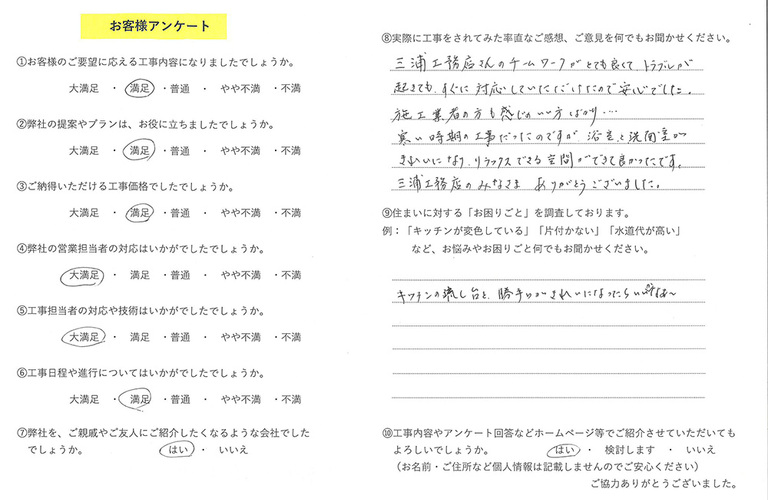 お客様アンケート
①お客様のご要望に応える工事内容になりましたでしょうか。
大満足 ・ 満足 ・普通 ・ やや不満 ・不満
②弊社の提案やプランは、お役に立ちましたでしょうか。
大満足 ・ 満足 ・普通 ・ やや不満 ・不満
③ご納得いただける工事価格でしたでしょうか。
大満足 ・ 満足 ・普通 ・ やや不満 ・不満
④弊社の営業担当者の対応はいかがでしたでしょうか。
大満足 ・ 満足 ・普通 ・ やや不満 ・不満
⑤工事担当者の対応や技術はいかがでしたでしょうか。
大満足 ・ 満足 ・普通 ・ やや不満 ・不満
⑥工事日程や進行についてはいかがでしたでしょうか。
大満足 ・ 満足 ・普通 ・ やや不満 ・不満
⑦弊社を、ご親戚やご友人にご紹介したくなるような会社でした
でしょうか。 はい ・ いいえ
⑧実際に工事をされてみた率直なご感想、ご意見を何でもお聞かせください。
三浦工務店さんのチームワークがとても良くて、トラブルが
起きても、すぐに対応していただけたので安心でした。
施工業者の方も感じのいい方ばかり…
寒い時期の工事だったのですが 浴室と洗面室が
きれいになり、リラックスできる空間ができて良かったです。
三浦工務店のみなさま ありがとうございました。
⑨住まいに対する「お困りごと」を調査しております。
例：「キッチンが変色している」「片付かない」「水道代が高い」
など、お悩みやお困りごと何でもお聞かせください。
キッチンの流し台と、勝手口がきれいになったらいいなぁ～
⑩工事内容やアンケート回答などホームページ等でご紹介させていただいても
よろしいでしょうか。 はい ・ 検討します ・ いいえ
（お名前・ご住所など個人情報は記載しませんのでご安心ください）
ご協力ありがとうございました。